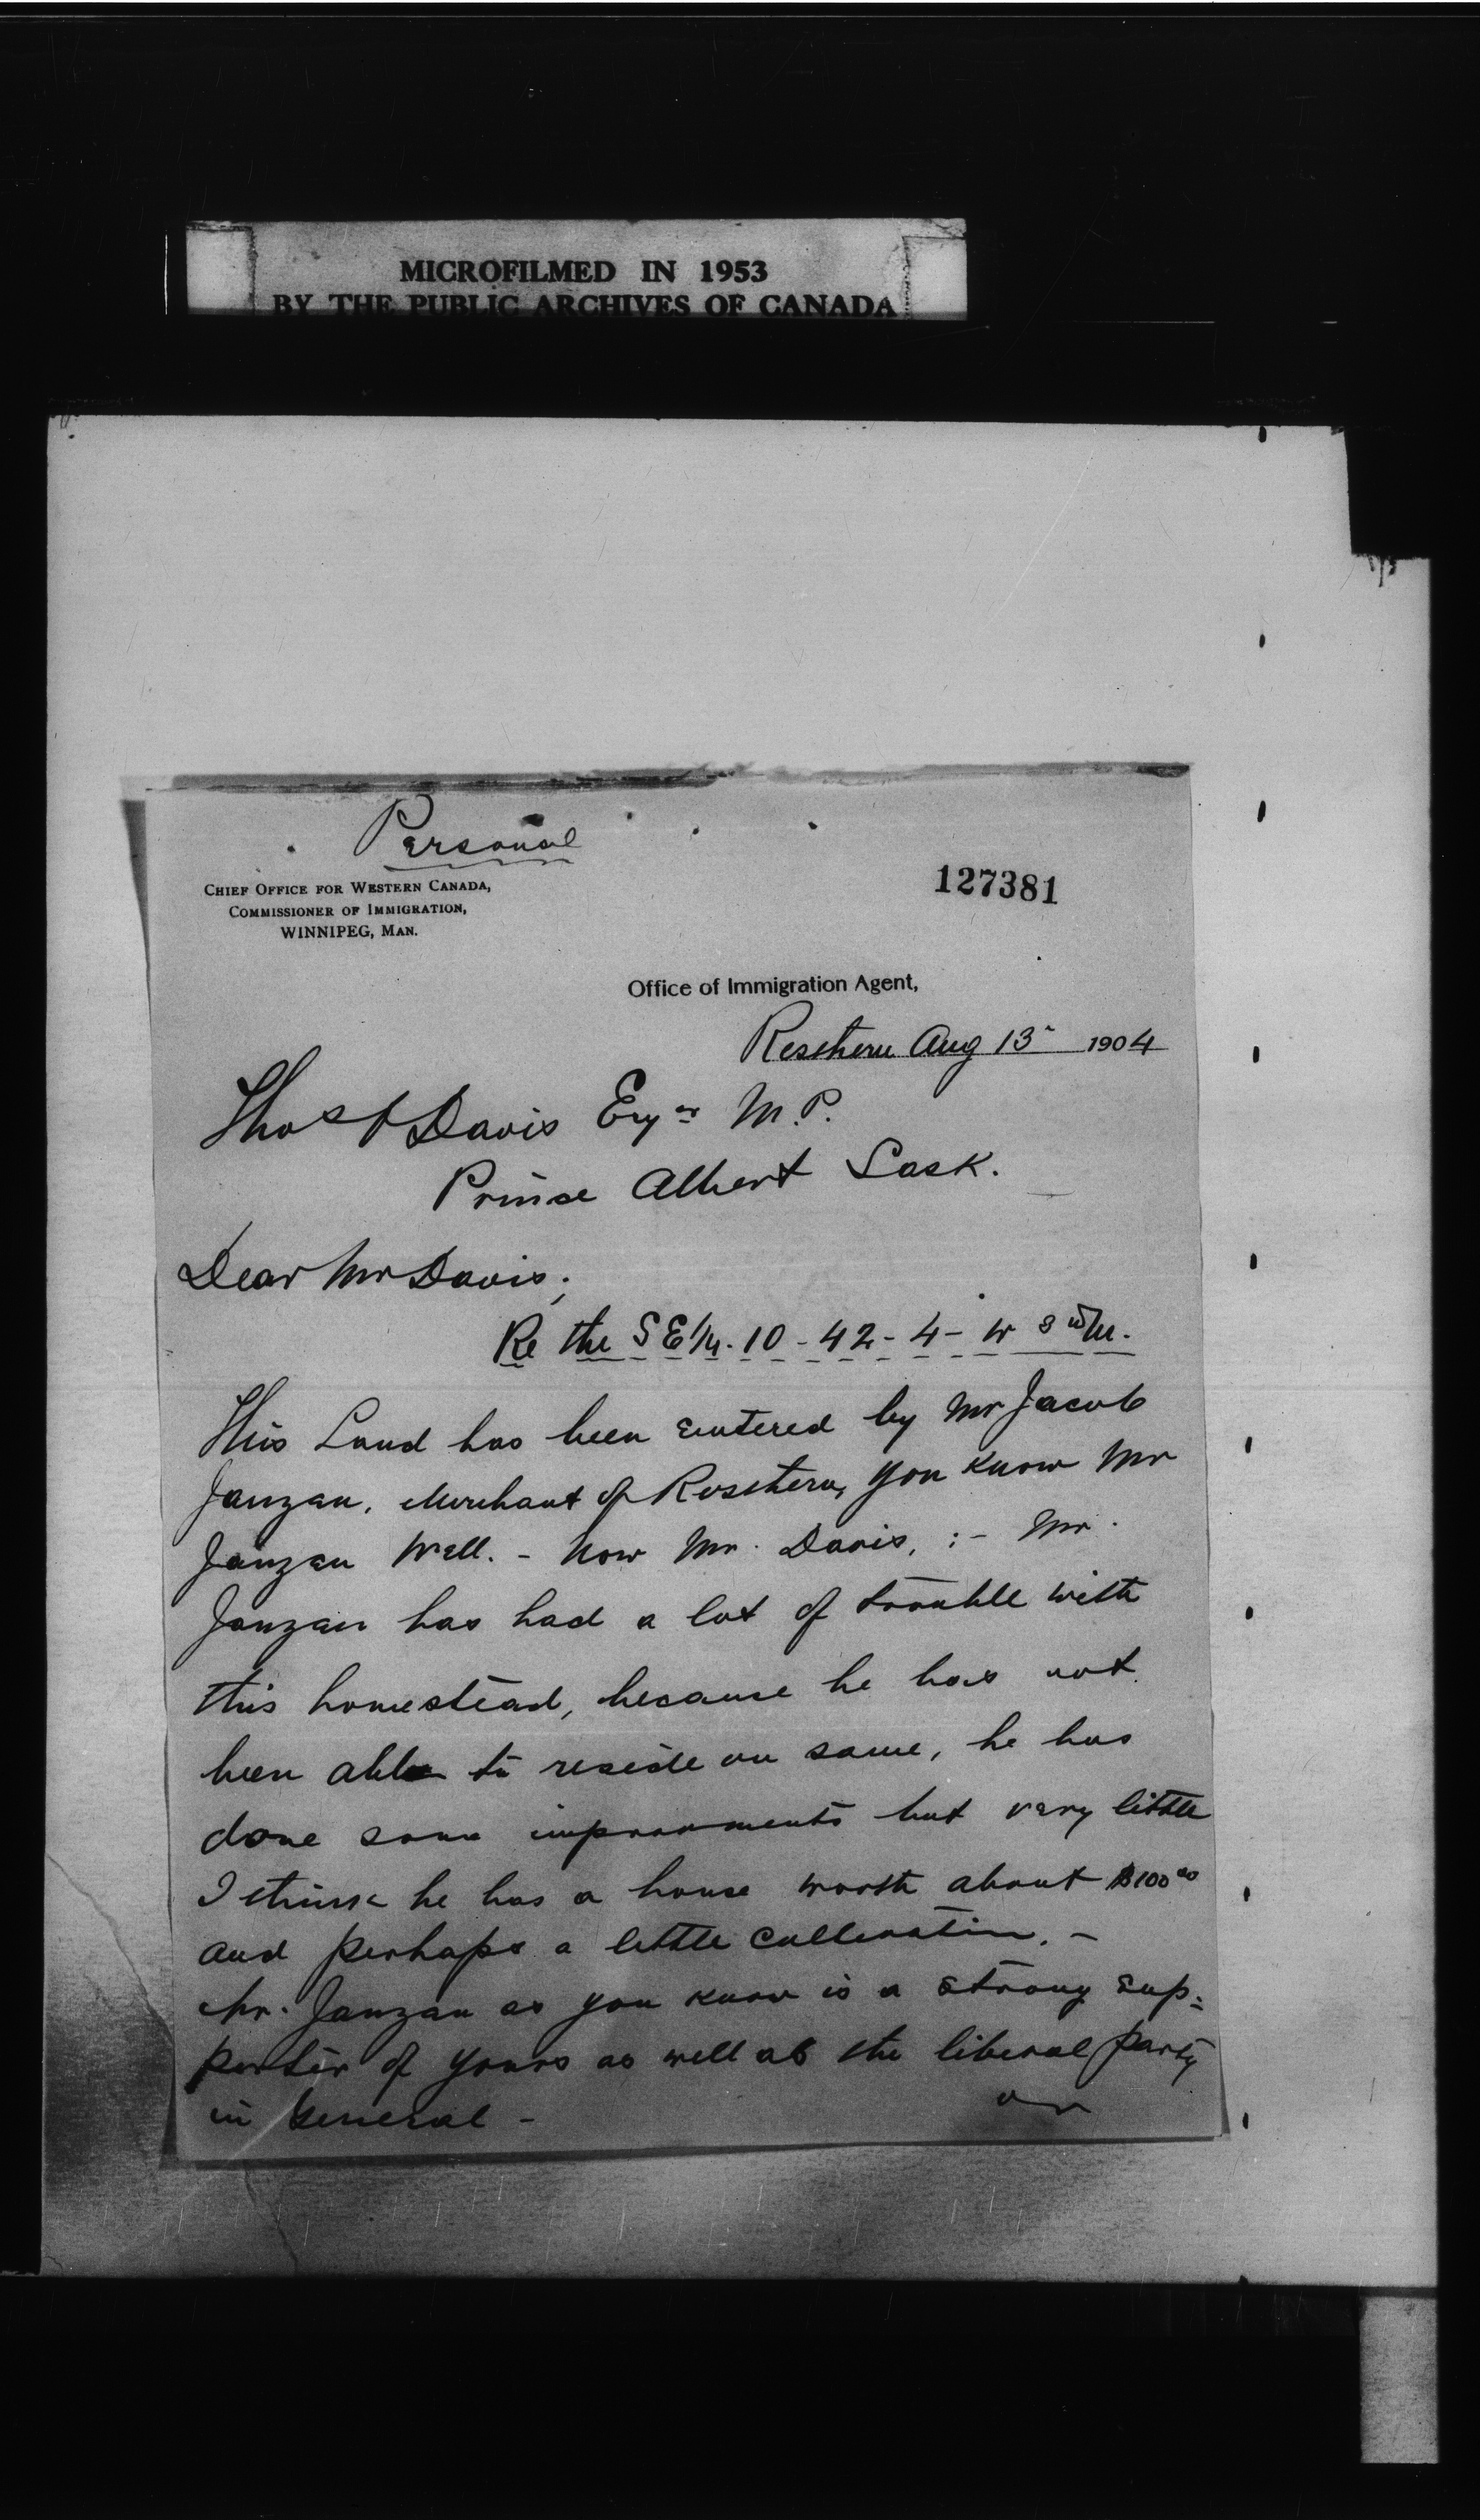 MICROFILMED IN 1953
BY THE PUBLIC ARCHIVES OF CANADA
Personal
127381
CHIEF OFFICE FOR WESTERN CANADA,
COMMISSIONER OF IMMIGRATION,
WINNIPEG, MAN.
Office of Immigration Agent,
Rosthern Aug 13 1904
Thos Davis Esqr M.P.
Prince Albert Sask.
Dear Mr Davis;
Re the SE 1/4. 10 - 42 - 4 - W 3rd M.
This Land has been entered by Mr Jacob
Janzen, Merchant of Rosthern, you know Mr
Janzen Well. - Now Mr. Davis, :- Mr.
Janzen has had a lot of trouble with
this homestead, because he has not
been able to reside on same, he has
done some improvments but very little
I think he has a house worth about $100.00
and perhaps a little cultivation. -
Mr. Janzen as you know is a strong sup-
porter of yours as well as the liberal party
in General -